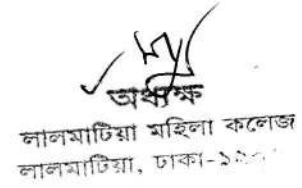 অধ্যক্ষ
লালমাটিয়া মহিলা কলেজ
লালমাটিয়া, ঢাকা-